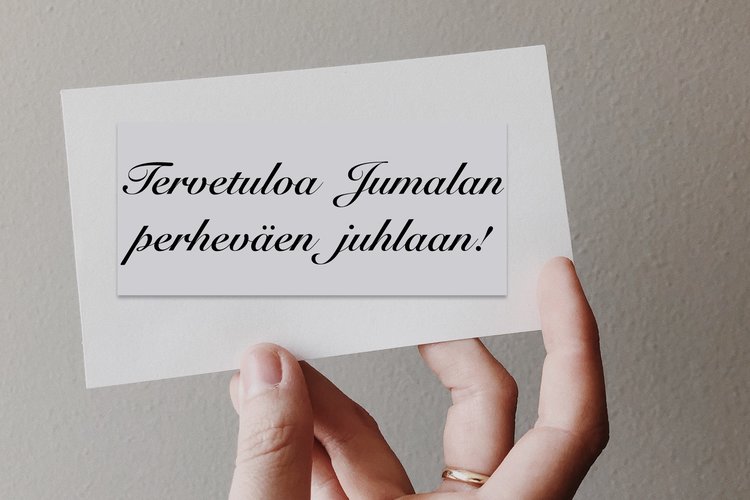 Tervetuloa Jumalan
perheväen juhlaan!